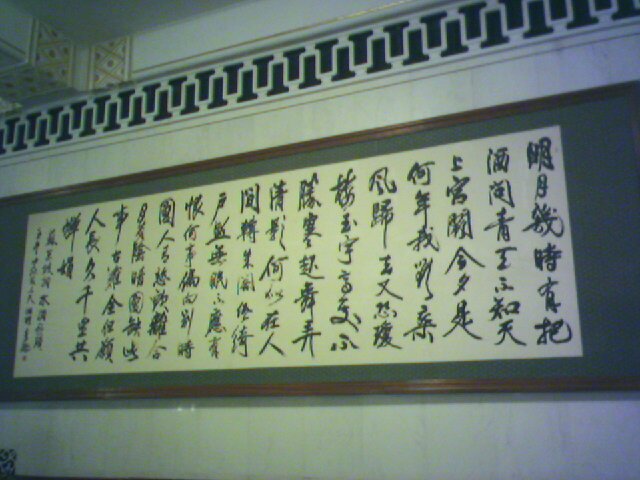 明月幾時有把
酒問青天不知天
上宮闕今夕是
何年我欲乘
風歸去又恐瓊
樓玉宇高處不
勝寒起舞弄
清影何似在人
間轉朱閣低綺
戶照無眠不應有
恨何事偏向別時
圓人有悲歡離合
月有陰晴圓缺此
事古難全但願
人長久千里共
嬋娟
蘇東坡詞水調歌頭